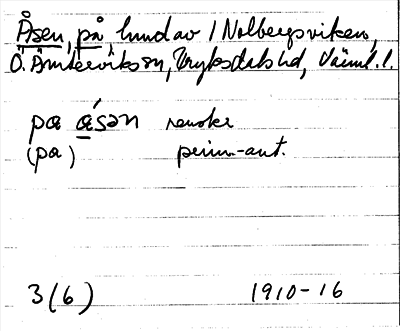 Åsen, på, hund av 1 Nolbergsviken,
Ö. Ämterviks sn, Fryksdals hd, Värml. l.
pɑ ɑ́sən renskr
(pɑ) perm-ant.
3(6) 1910-16